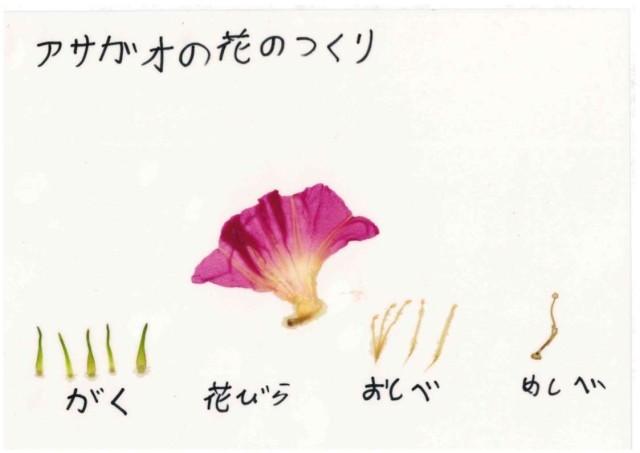 アサガオの花のつくり
がく
花びら
おしべ
めしべ